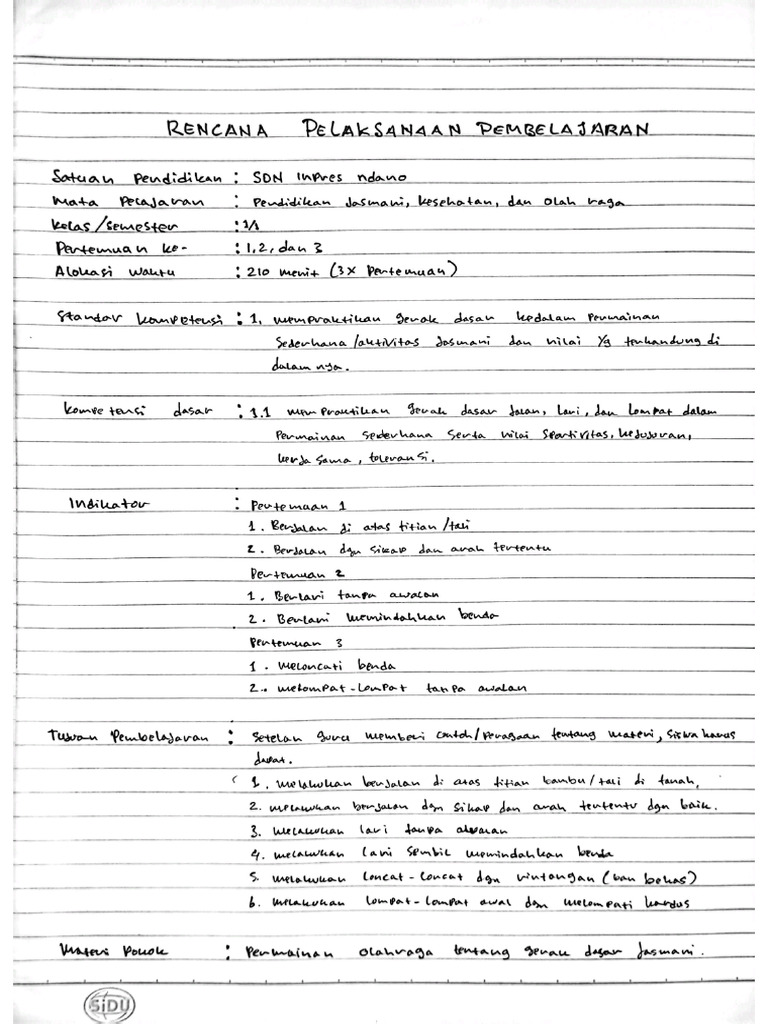 RENCANA PELAKSANAAN PEMBELAJARAN
Satuan Pendidikan : SDN Inpres ndano
Mata Pelajaran : Pendidikan Jasmani, kesehatan, dan olah raga
Kelas/semester : 1/1
Pertemuan ke- : 1, 2, dan 3
Alokasi waktu : 210 menit (3x Pertemuan)
Standar kompetensi : 1. mempraktikan gerak dasar kedalam permainan
sederhana/aktivitas Jasmani dan nilai yg terkandung di
dalam nya.
kompetensi dasar : 1.1 mempraktikan gerak dasar jalan, lari, dan lompat dalam
Permainan sederhana serta nilai sportivitas, kejujuran,
kerja sama, toleransi.
Indikator : Pertemuan 1
1. Berjalan di atas titian/tali
2. Berjalan dgn sikap dan arah tertentu
Pertemuan 2
1. Berlari tanpa awalan
2. Berlari memindahkan benda
Pertemuan 3
1. meloncati benda
2. melompat-lompat tanpa awalan
Tujuan Pembelajaran : Setelah guru memberi contoh/peragaan tentang materi, siswa harus
dapat.
1. melakukan berjalan di atas titian bambu/tali di tanah,
2. melakukan berjalan dgn sikap dan arah tertentu dgn baik.
3. melakukan lari tanpa awalan
4. melakukan lari sembil memindahkan benda
5. melakukan loncat-loncat dgn rintangan (ban bekas)
6. melakukan lompat-lompat awal dgn melompati kardus
Materi Pokok : Permainan olahraga tentang gerak dasar Jasmani.
SiDU